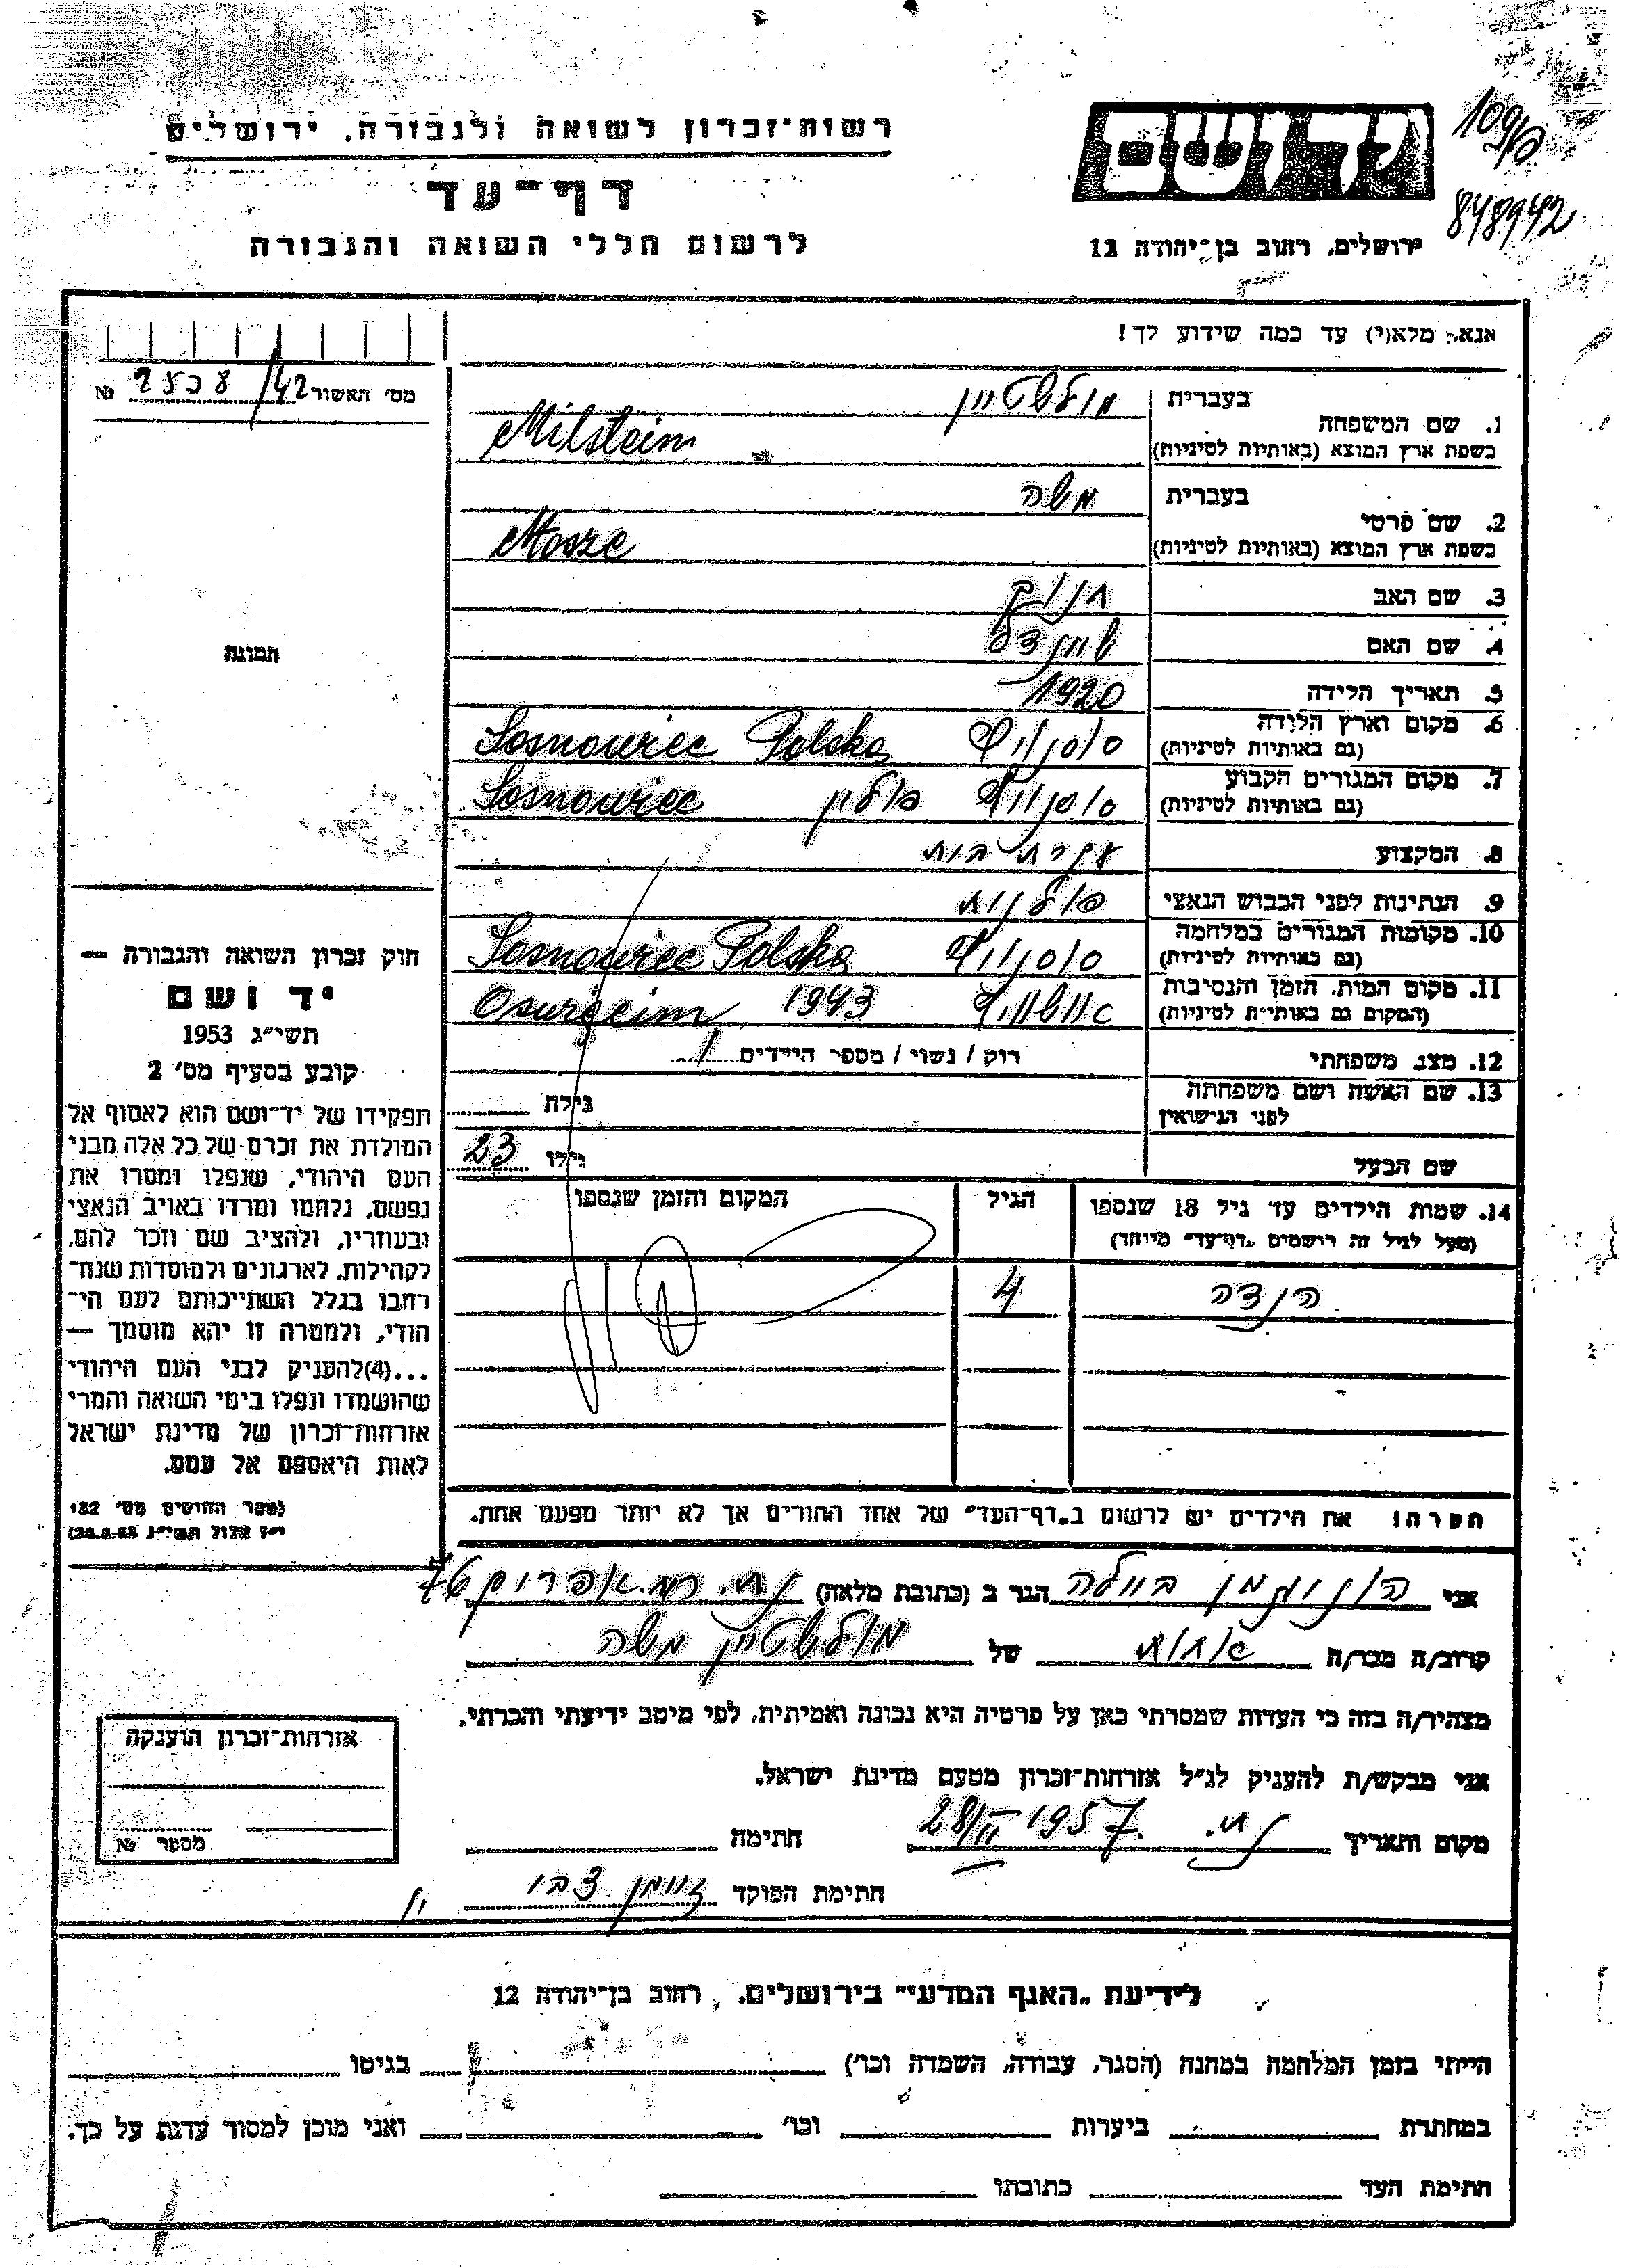 רשות־זכרון לשואה ולגבורה, ירושלים
דף־עד
לרשום חללי השואה והגבורה
יד ושם
ירושלים, רחוב בן־יהודה 12
848942
אנא, מלא(י) עד כמה שידוע לך!
מס׳ האשור № 2508/42
1. שם המשפחה בעברית מילשטיין
בשפת ארץ המוצא (באותיות לטיניות) Milstein
2. שם פרטי בעברית משה
בשפת ארץ המוצא (באותיות לטיניות) Mosze
3. שם האב חנוך
4. שם האם שיינדל
5. תאריך הלידה 1920
6. מקום וארץ הלידה (גם באותיות לטיניות) סוסנוויץ Sosnowiec Polska
7. מקום המגורים הקבוע (גם באותיות לטיניות) סוסנוויץ פולין Sosnowiec
8. המקצוע עקרת בית
9. הנתינות לפני הכבוש הנאצי פולנית
10. מקומות המגורים במלחמה (גם באותיות לטיניות) סוסנוויץ Sosnowiec Polska
11. מקום המות, הזמן והנסיבות (המקום גם באותיות לטיניות) אושוויץ 1943 Oswięcim
12. מצב משפחתי רוק / נשוי / מספר הילדים 1
13. שם האשה ושם משפחתה לפני הנישואין גילה
שם הבעל גילו 23
14. שמות הילדים עד גיל 18 שנספו הגיל המקום והזמן שנספו
(מעל לגיל זה רושמים „דף־עד״ מיוחד)
הנדה 4
תמונה
חוק זכרון השואה והגבורה —
יד ושם
תשי״ג 1953
קובע בסעיף מס׳ 2
תפקידו של יד־ושם הוא לאסוף אל
המולדת את זכרם של כל אלה מבני
העם היהודי, שנפלו ומסרו את
נפשם, נלחמו ומרדו באויב הנאצי
ובעוזריו, ולהציב שם וזכר להם,
לקהילות, לארגונים ולמוסדות שנח־
רבו בגלל השתייכותם לעם הי־
הודי, ולמטרה זו יהא מוסמך —
...(4) להעניק לבני העם היהודי
שהושמדו ונפלו בימי השואה והמרי
אזרחות־זכרון של מדינת ישראל
לאות היאספם אל עמם.
(ספר החוקים מס׳ 132
י״ז אלול תשי״ג 28.8.53)
הערה: את הילדים יש לרשום ב„דף־העד״ של אחד ההורים אך לא יותר מפעם אחת.
אני ביילה הגר ב (כתובת מלאה)
קרוב/ה מכר/ה אחות של מילשטיין משה
מצהיר/ה בזה כי העדות שמסרתי כאן על פרטיה היא נכונה ואמיתית, לפי מיטב ידיעתי והכרתי.
אני מבקש/ת להעניק לנ״ל אזרחות־זכרון מטעם מדינת ישראל.
מקום ותאריך 28/II 1957 חתימה
חתימת הפוקד זיימן צבי
אזרחות־זכרון הוענקה
מספר №
לידיעת „האגף המדעי״ בירושלים, רחוב בן־יהודה 12
הייתי בזמן המלחמה במחנה (הסגר, עבודה, השמדה וכו׳) בגיטו
במחתרת ביערות וכו׳ ואני מוכן למסור עדות על כך.
חתימת העד כתובתו